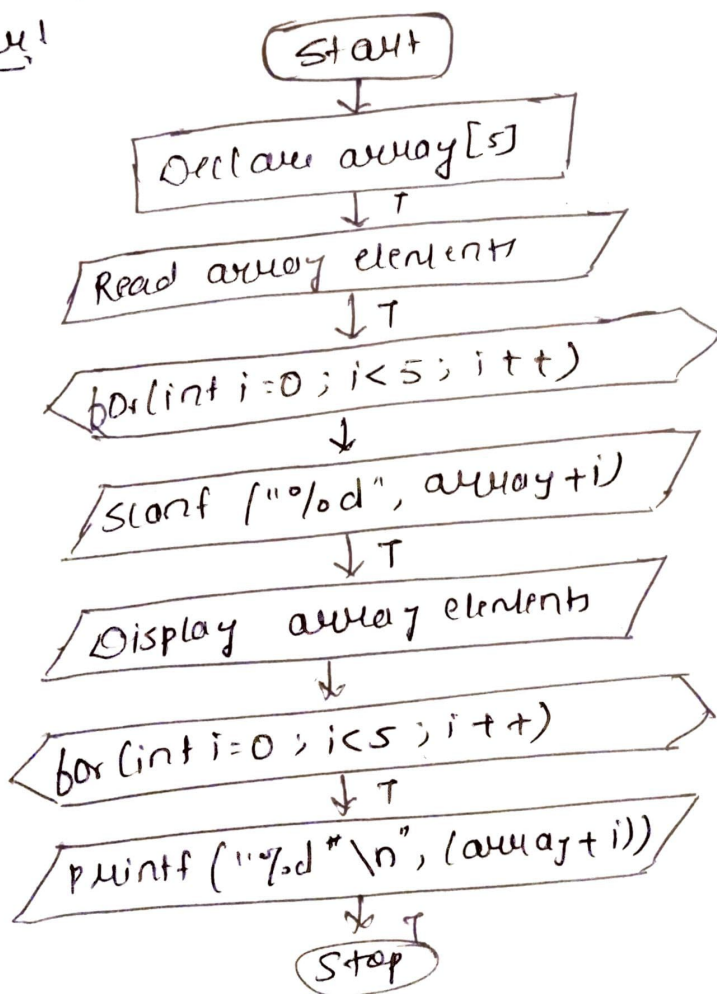 Start
Declare array[5]
T
Read array elements
T
for(int i=0; i<5; i++)
scanf ("%d", array+i)
T
Display array elements
for(int i=0; i<5; i++)
T
printf ("%d"\n", (array+i))
T
Stop